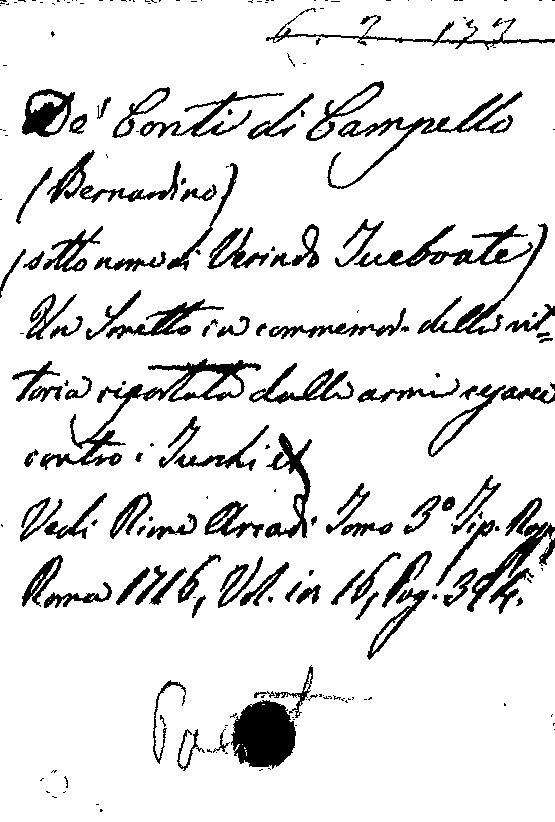 6. 2. 133
De' Conti di Campello
(Bernardino)
(sotto nome di Verindo Tueboate)
Un Sonetto in commemor. della vit=
toria riportata dalle armi cesaree
contro i Turchi
Vedi Rime Arcadi Tomo 3º Tip. Rossi
Roma 1716, Vol. in 16, Pag. 394.